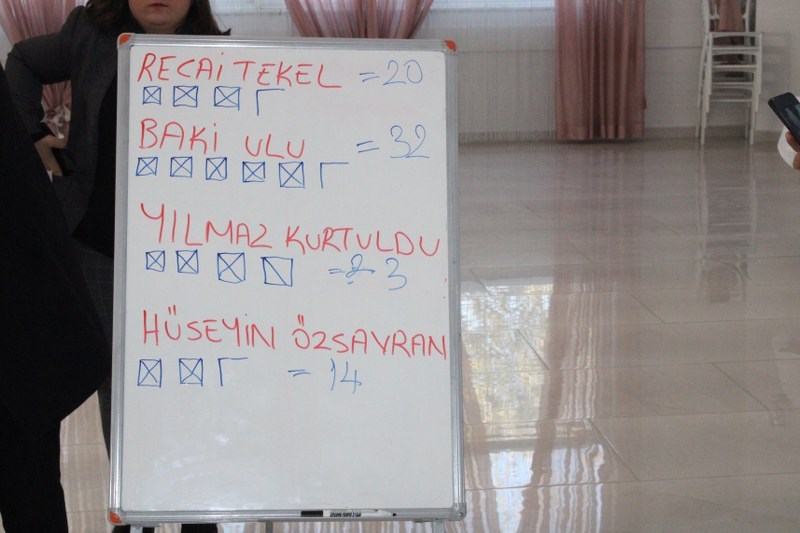 RECAİ TEKEL = 20
BAKİ ULU = 32
YILMAZ KURTULDU
= 23
HÜSEYİN ÖZSAVRAN
= 14